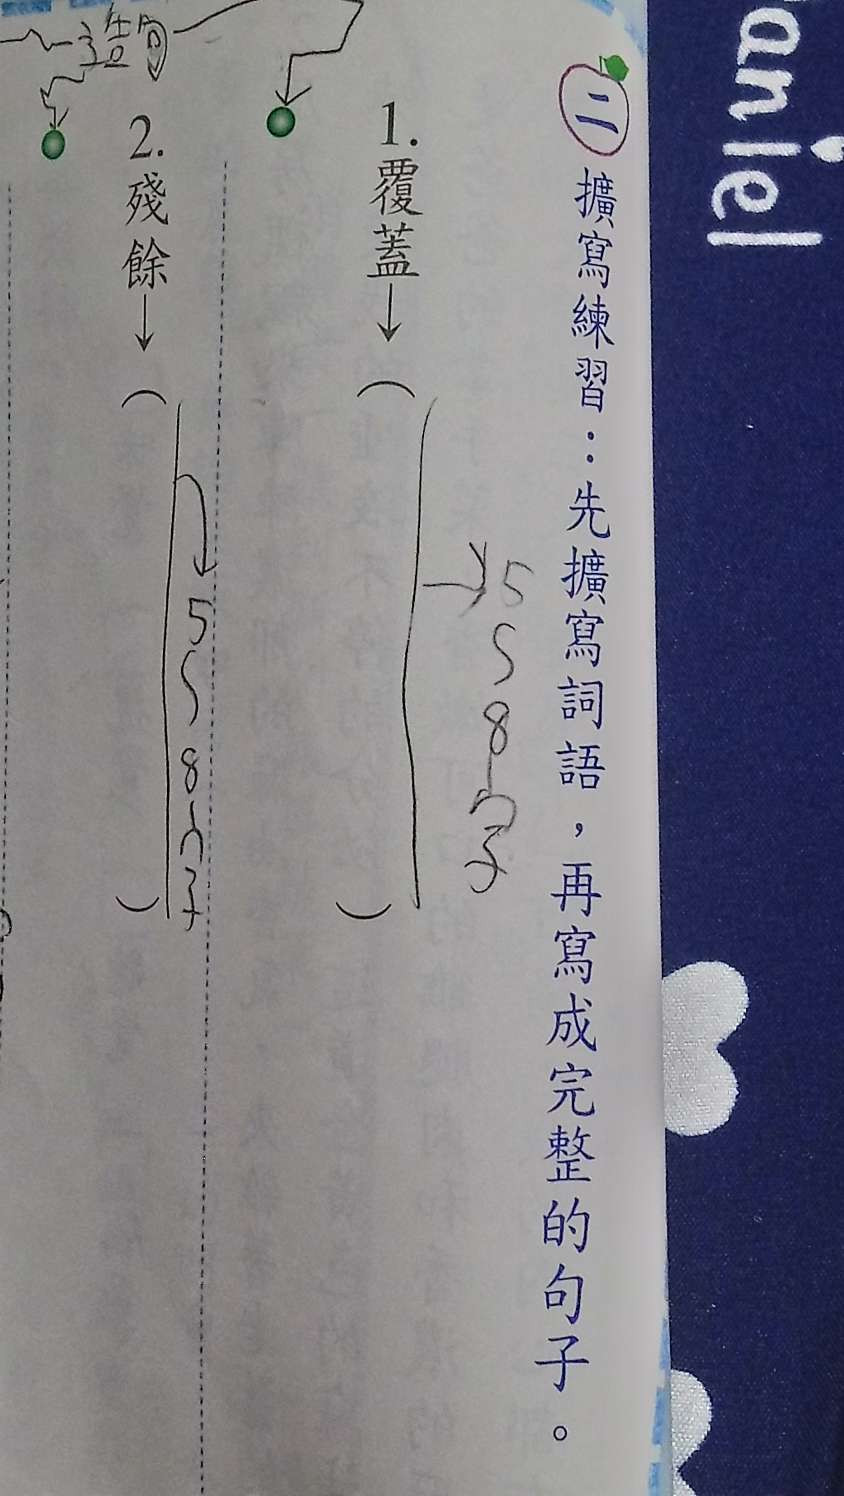 Daniel
二 擴寫練習：先擴寫詞語，再寫成完整的句子。
1.覆蓋→（ ）
→5～8个字
造句
2.殘餘→（ ）
5～8个字